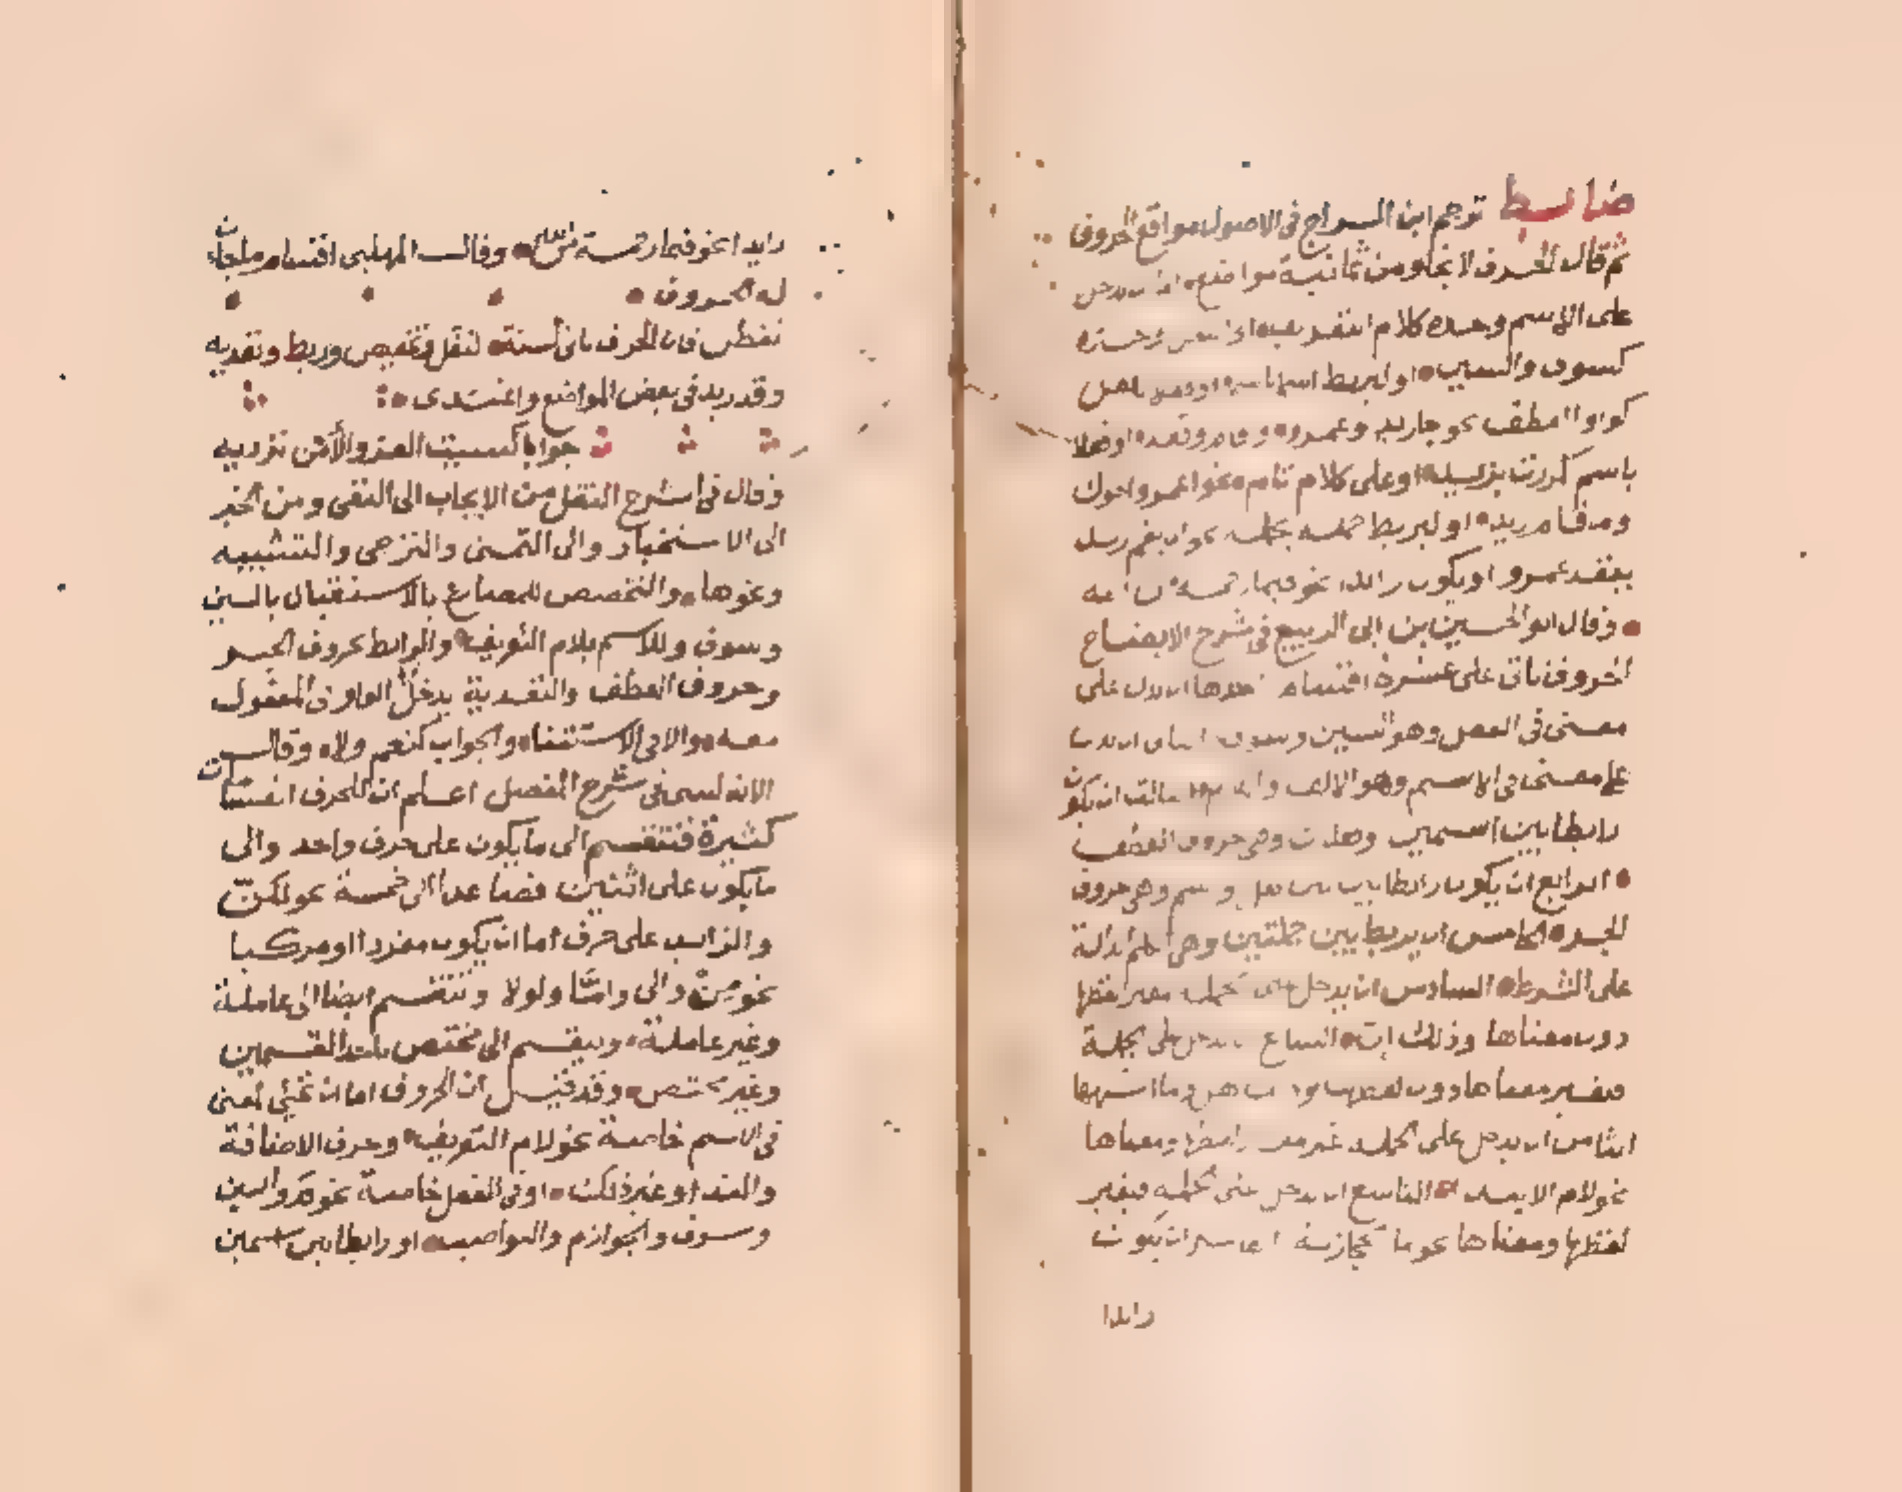 ضابط ترجم ابن السراج في الاصول مواقع الحروف
ثم قال الحرف لا يخلو من ثمانية مواضع اما ان يدخل
على الاسم وحده كلام التعريف او الفعل وحده
كسوف والسين او ليربط اسما باسم او فعلا بفعل
كواو العطف نحو جا زيد وعمرو وقام وقعد او فعلا
باسم كمررت بزيد او على كلام تام نحو اعمرو اخوك
وما قام زيد او ليربط جملة بجملة نحو ان يقم زيد
يقعد عمرو او يكون زائدا نحو فبما رحمة من الله
وقال ابو الحسين بن ابي الربيع في شرح الايضاح
الحروف تاتي على عشرة اقسام احدها ان يدل على
معنى في الفعل وهو السين وسوف الثاني ان يدل
على معنى في الاسم وهو الالف واللام الثالث ان يكون
رابطا بين اسمين وفعلين وهي حروف العطف
الرابع ان يكون رابطا بين فعل واسم وهي حروف
الجر الخامس ان يربط بين جملتين وهي الكلم الدالة
على الشرط السادس ان يدخل على الجملة مغير لفظها
دون معناها وذلك ان السابع ان يدخل على الجملة
فيغير معناها دون لفظها وذلك هل وما اشبهها
الثامن ان يدخل على الجملة غير مغير لفظها ومعناها
نحو لام الابتداء التاسع ان يدخل على الجملة فيغير
لفظها ومعناها نحو ما الحجازية العاشر ان يكون
زايدا
زايدا نحو فبما رحمة من الله وقال المهلبي اقسام ما جاءت
له الحروف
تفطن فان الحرف ياتي لستة لنقل وتخصيص وربط وتعديه
وقد زيد في بعض المواضع واغتدى
جوابا كسيت العز والامن ترديه
وقال في الشرح النقل من الايجاب الى النفي ومن الخبر
الى الاستخبار والى التمني والترجي والتشبيه
ونحوها والتخصيص للمضارع بالاستقبال بالسين
وسوف وللاسم بلام التعريف والرابط حروف الجر
وحروف العطف والتعدية يدخل الواو في المفعول
معه والا في الاستثناء والجواب كنعم ولا وقال
الاندلسي في شرح المفصل اعلم ان للحرف انقسامات
كثيرة فتنقسم الى ما يكون على حرف واحد والى
ما يكون على اثنين فصاعدا الى خمسة نحو لكنّ
والزائد على حرف اما ان يكون مفردا او مركبا
نحو من والى واما ولولا وتنقسم ايضا الى عاملة
وغير عاملة وينقسم الى مختص باحد القسمين
وغير مختص وقد قيل ان الحروف اما ان تجئي لمعنى
في الاسم خاصة نحو لام التعريف وحرف الاضافة
والندا وغير ذلك او في الفعل خاصة نحو قد والسين
وسوف والجوازم والنواصب او رابطا بين اسمين